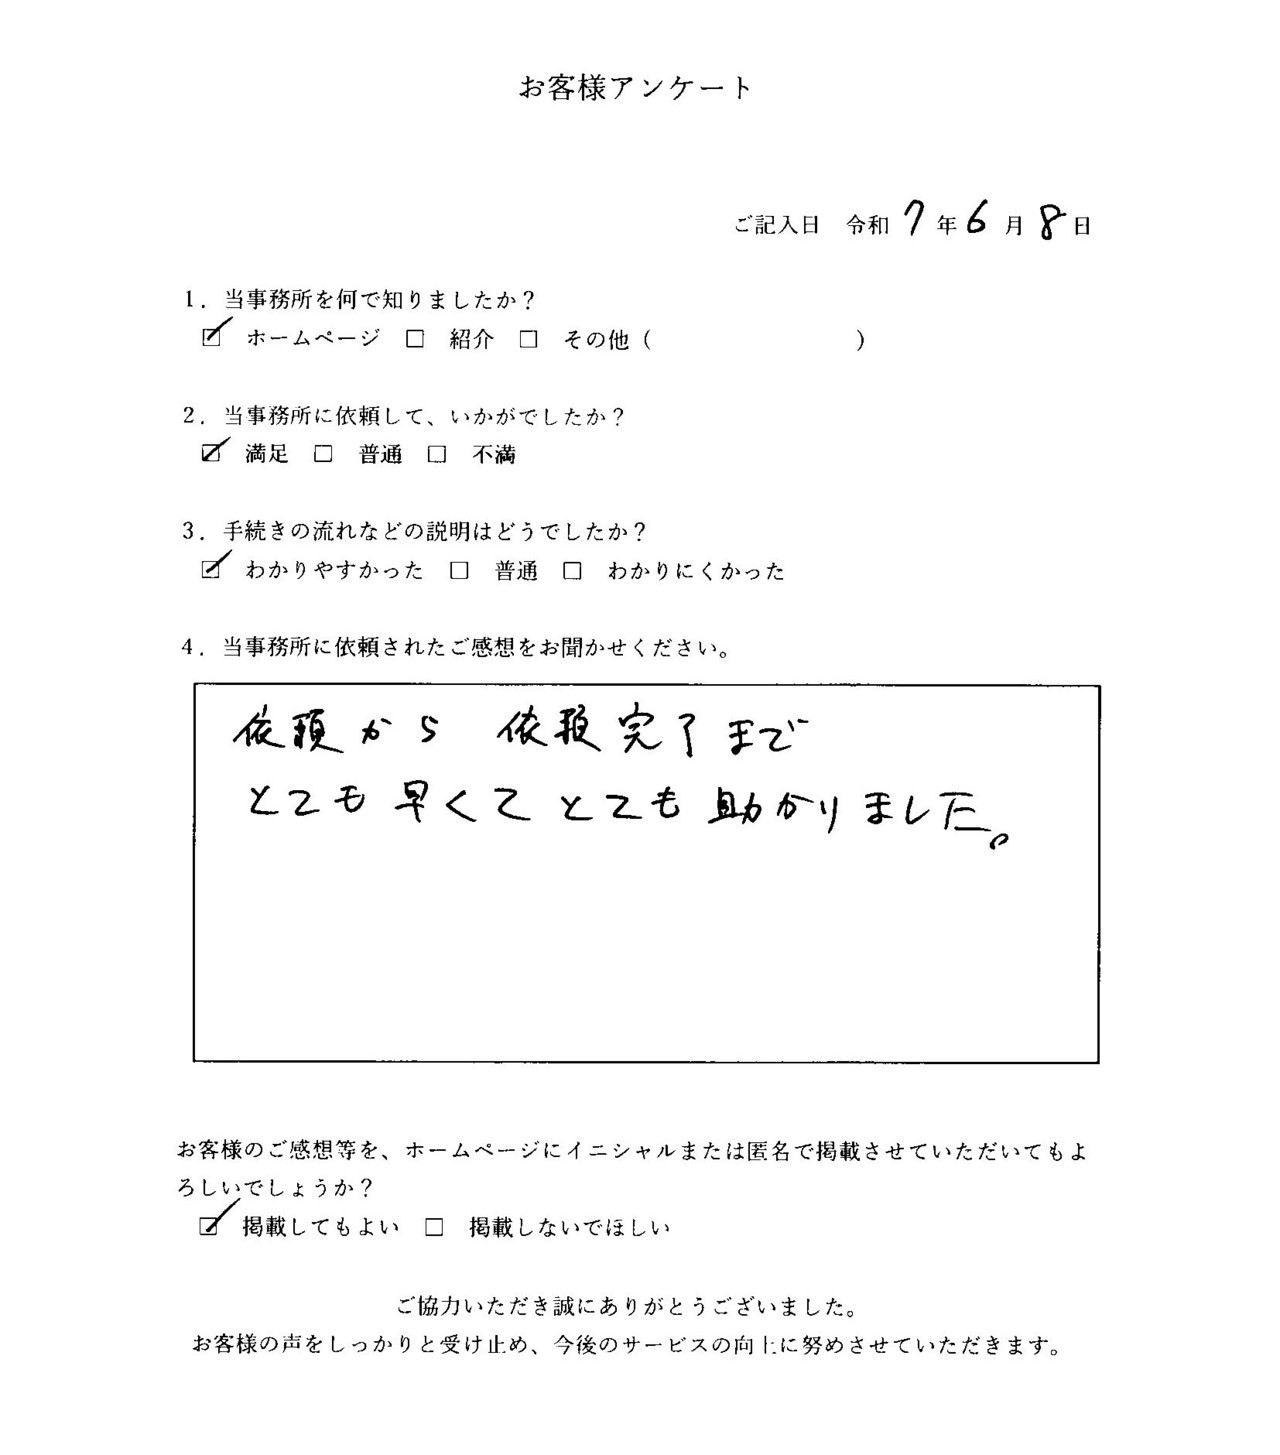 お客様アンケート
ご記入日 令和 7 年 6 月 8 日
1. 当事務所を何で知りましたか？
☑ ホームページ □ 紹介 □ その他（ ）
2. 当事務所に依頼して、いかがでしたか？
☑ 満足 □ 普通 □ 不満
3. 手続きの流れなどの説明はどうでしたか？
☑ わかりやすかった □ 普通 □ わかりにくかった
4. 当事務所に依頼されたご感想をお聞かせください。
依頼から 依頼完了まで
とても早くてとても助かりました。
お客様のご感想等を、ホームページにイニシャルまたは匿名で掲載させていただいてもよ
ろしいでしょうか？
☑ 掲載してもよい □ 掲載しないでほしい
ご協力いただき誠にありがとうございました。
お客様の声をしっかりと受け止め、今後のサービスの向上に努めさせていただきます。